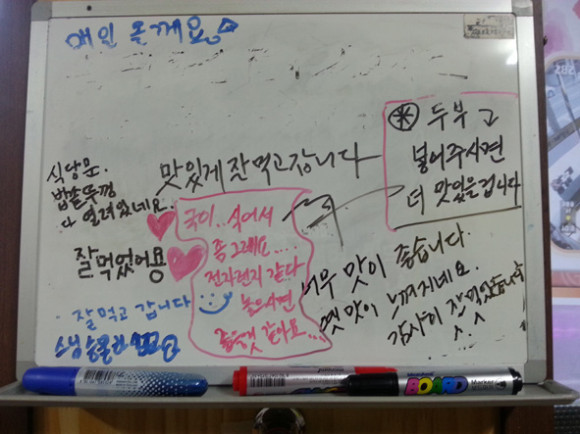 매일 올께요
식당문.
밥솥뚜껑
다 열려있네요.
맛있게 잘 먹고 갑니다
두부 고
넣어주시면
더 맛있을겁니다
국이.. 식어서
좀 그래요....
전자렌지 갖다
놓으시면
좋을것 같아요...
잘먹었어용
· 잘먹고 갑니다
너무 맛이 좋습니다.
옛 맛이 느껴지네요.
감사히 잘 먹었습니다
BOARD
Marker